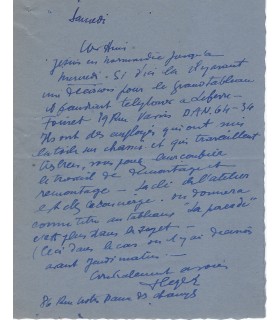 Samedi
Cher Ami
Je suis en Normandie jusqu'à
mercredi. Si d'ici là il y avait
une décision pour le grand tableau
il faudrait téléphoner à Lefebvre
Foinet 19 Rue Vavin DAN. 64-34
Ils ont des employés qui ont mis
la toile sur chassis et qui travaillent
vous pouvez
le travail de démontage et
remontage — la clé de l'atelier
est chez la concierge. On donnera
comme titre au tableau "La parade"
c'est plus dans le sujet —
(Ceci dans le cas où
avant jeudi matin —
Cordialement à vous
FLeger
86 Rue Notre Dame des Champs